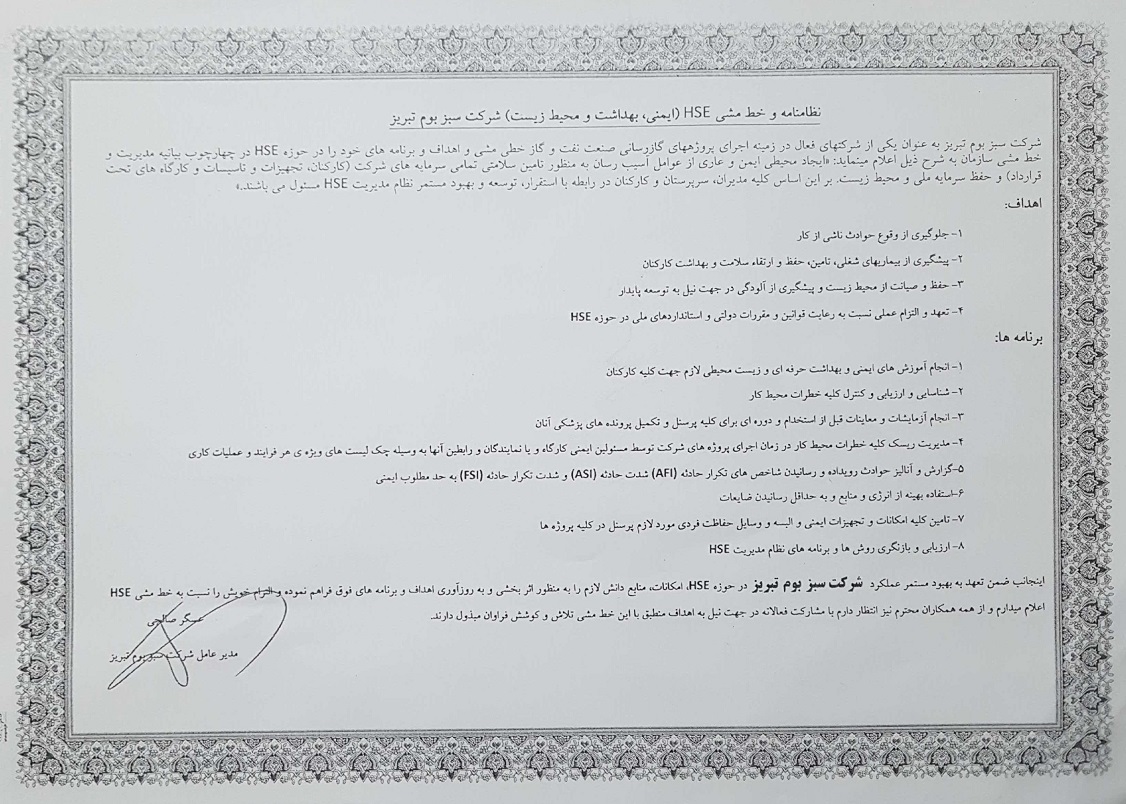 نظامنامه و خط مشی HSE (ایمنی، بهداشت و محیط زیست) شرکت سبز بوم تبریز
شرکت سبز بوم تبریز به عنوان یکی از شرکتهای فعال در زمینه اجرای پروژههای گازرسانی صنعت نفت و گاز خطی مشی و اهداف و برنامه های خود را در حوزه HSE در چهارچوب بیانیه مدیریت و
خط مشی سازمان به شرح ذیل اعلام مینماید: «ایجاد محیطی ایمن و عاری از عوامل آسیب رسان به منظور تامین سلامتی تمامی سرمایه های شرکت (کارکنان، تجهیزات و تاسیسات و کارگاه های تحت
قرارداد) و حفظ سرمایه ملی و محیط زیست. بر این اساس کلیه مدیران، سرپرستان و کارکنان در رابطه با استقرار، توسعه و بهبود مستمر نظام مدیریت HSE مسئول می باشند.»
اهداف:
۱- جلوگیری از وقوع حوادث ناشی از کار
۲- پیشگیری از بیماریهای شغلی، تامین، حفظ و ارتقاء سلامت و بهداشت کارکنان
۳- حفظ و صیانت از محیط زیست و پیشگیری از آلودگی در جهت نیل به توسعه پایدار
۴- تعهد و التزام عملی نسبت به رعایت قوانین و مقررات دولتی و استانداردهای ملی در حوزه HSE
برنامه ها:
۱- انجام آموزش های ایمنی و بهداشت حرفه ای و زیست محیطی لازم جهت کلیه کارکنان
۲- شناسایی و ارزیابی و کنترل کلیه خطرات محیط کار
۳- انجام آزمایشات و معاینات قبل از استخدام و دوره ای برای کلیه پرسنل و تکمیل پرونده های پزشکی آنان
۴- مدیریت ریسک کلیه خطرات محیط کار در زمان اجرای پروژه های شرکت توسط مسئولین ایمنی کارگاه و یا نمایندگان و رابطین آنها به وسیله چک لیست های ویژه ی هر فرایند و عملیات کاری
۵-گزارش و آنالیز حوادث رویداده و رسانیدن شاخص های تکرار حادثه (AFI) شدت حادثه (ASI) و شدت تکرار حادثه (FSI) به حد مطلوب ایمنی
۶-استفاده بهینه از انرژی و منابع و به حداقل رسانیدن ضایعات
۷- تامین کلیه امکانات و تجهیزات ایمنی و البسه و وسایل حفاظت فردی مورد لازم پرسنل در کلیه پروژه ها
۸- ارزیابی و بازنگری روش ها و برنامه های نظام مدیریت HSE
اینجانب ضمن تعهد به بهبود مستمر عملکرد شرکت سبز بوم تبریز در حوزه HSE، امکانات، منابع دانش لازم را به منظور اثر بخشی و به روزآوری اهداف و برنامه های فوق فراهم نموده و التزام خویش را نسبت به خط مشی HSE
اعلام میدارم و از همه همکاران محترم نیز انتظار دارم با مشارکت فعالانه در جهت نیل به اهداف منطبق با این خط مشی تلاش و کوشش فراوان مبذول دارند.
عسگر صالحی
مدیر عامل شرکت سبز بوم تبریز